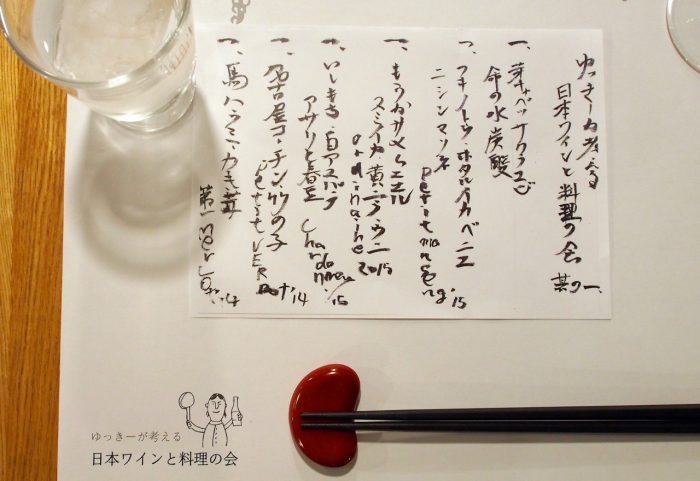 ゆっきーが考える
日本ワインと料理の会 其の一、
一、芽キャベツ サクラエビ
命の水 炭酸
一、フキノトウ・ホタルイカ ベニエ
ニシンマリネ
petit manseng '15
一、もうかサメ ムニエル
スミイカ・黄ニラ・ウニ
ordinaire 2015
一、いしもち・白アスパラ
アサリと春
chardonnay '15
一、名古屋コーチン・竹の子
petit VERDOT '14
一、馬ハラミ
第一 merlot '14
ゆっきーが考える
日本ワインと料理の会